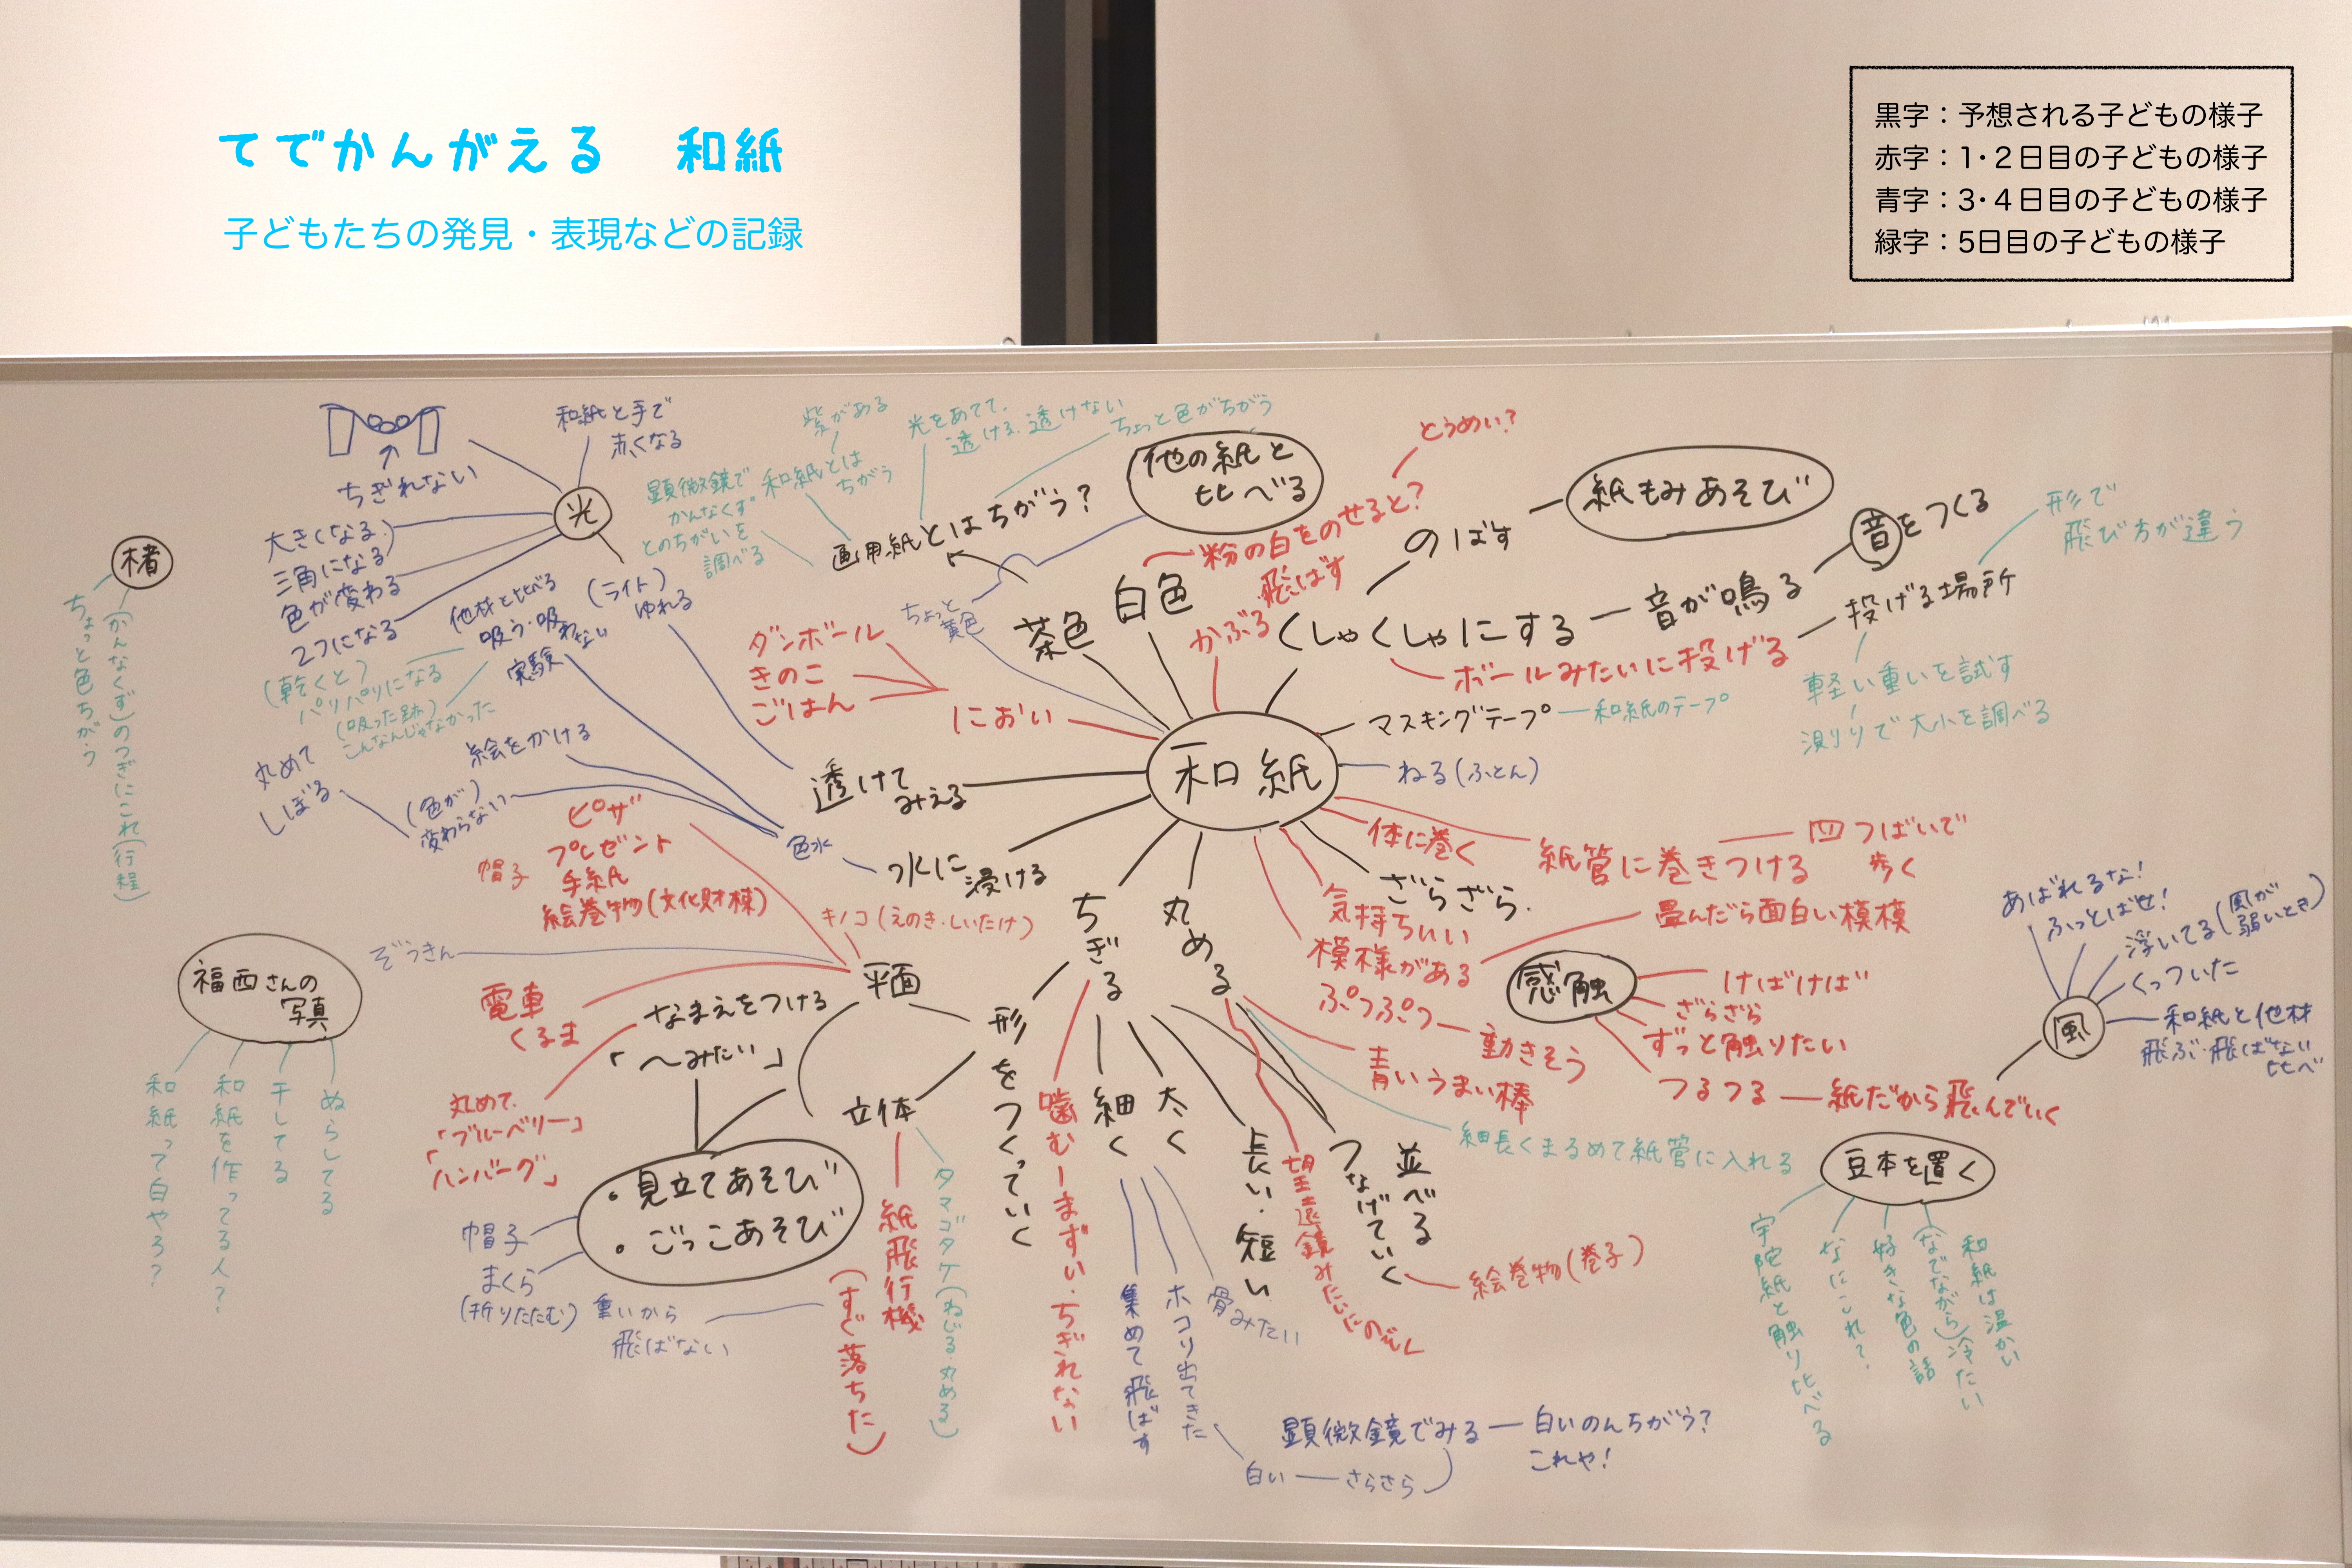 てでかんがえる 和紙
子どもたちの発見・表現などの記録
黒字：予想される子どもの様子
赤字：1・2日目の子どもの様子
青字：3・4日目の子どもの様子
緑字：5日目の子どもの様子
ちぎれない
和紙と手で
赤くなる
光
大きくなる
三角になる
色が変わる
2つになる
(ライト)
ゆれる
楮
ちょっと色ちがう
(かんなくず)のつぎにこれ(行程)
他材と比べる
吸う・吸わない
実験
(乾くと)
パリパリになる
(吸った跡)
こんなんじゃなかった
丸めて
しぼる
絵をかける
(色が)
変わらない
色水
水に
浸ける
透けて
みえる
紫がある
和紙とは
ちがう
顕微鏡で
かんなくず
とのちがいを
調べる
光をあてて、
透ける、透けない
ちょっと色がちがう
画用紙とはちがう？
他の紙と
比べる
ちょっと
黄色
茶色
白色
粉の白をのせると？
とうめい？
飛ばす
かぶる
ダンボール
きのこ
ごはん
におい
和紙
くしゃくしゃにする
のばす
紙もみあそび
音が鳴る
音をつくる
ボールみたいに投げる
投げる場所
形で
飛び方が違う
軽い重いを試す
測りで大小を調べる
マスキングテープ
和紙のテープ
ねる(ふとん)
体に巻く
紙管に巻きつける
四つばいで
歩く
ざらざら.
気持ちいい
模様がある
畳んだら面白い模様
ぷつぷつ
動きそう
青いうまい棒
感触
けばけば
ざらざら
ずっと触りたい
つるつる
紙だから飛んでいく
風
あばれるな！
ふっとばせ！
浮いてる(風が
弱いとき)
くっついた
和紙と他材
飛ぶ・飛ばない
比べ
ピザ
プレゼント
帽子
手紙
絵巻物(文化財棟)
キノコ(えのき・しいたけ)
ぞうきん
平面
電車
くるま
なまえをつける
「〜みたい」
丸めて、
「ブルーベリー」
「ハンバーグ」
・見立てあそび
・ごっこあそび
帽子
まくら
(折りたたむ)
重いから
飛ばない
立体
紙飛行機
(すぐ落ちた)
タマゴタケ(ねじる・丸める)
形をつくっていく
ちぎる
噛むーまずい・ちぎれない
細く
太く
集めて飛ばす
ホコリ出てきた
骨みたい
長い・短い
丸める
望遠鏡みたいにのぞく
つなげていく
並べる
絵巻物(巻子)
細長くまるめて紙管に入れる
白い
さらさら
顕微鏡でみる
白いのんちがう？
これや！
福西さんの
写真
和紙って白やろ？
和紙を作ってる人？
干してる
ぬらしてる
豆本を置く
宇陀紙と触り比べる
なにこれ？
好きな色の話
(なでながら)冷たい
和紙は温かい